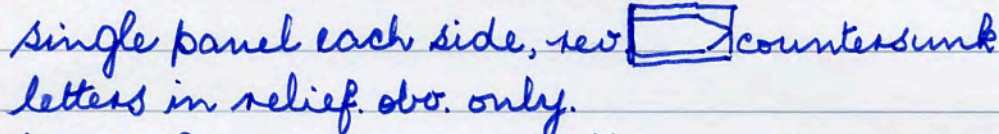 single panel each side, rev countersunk
letters in relief. obv. only.